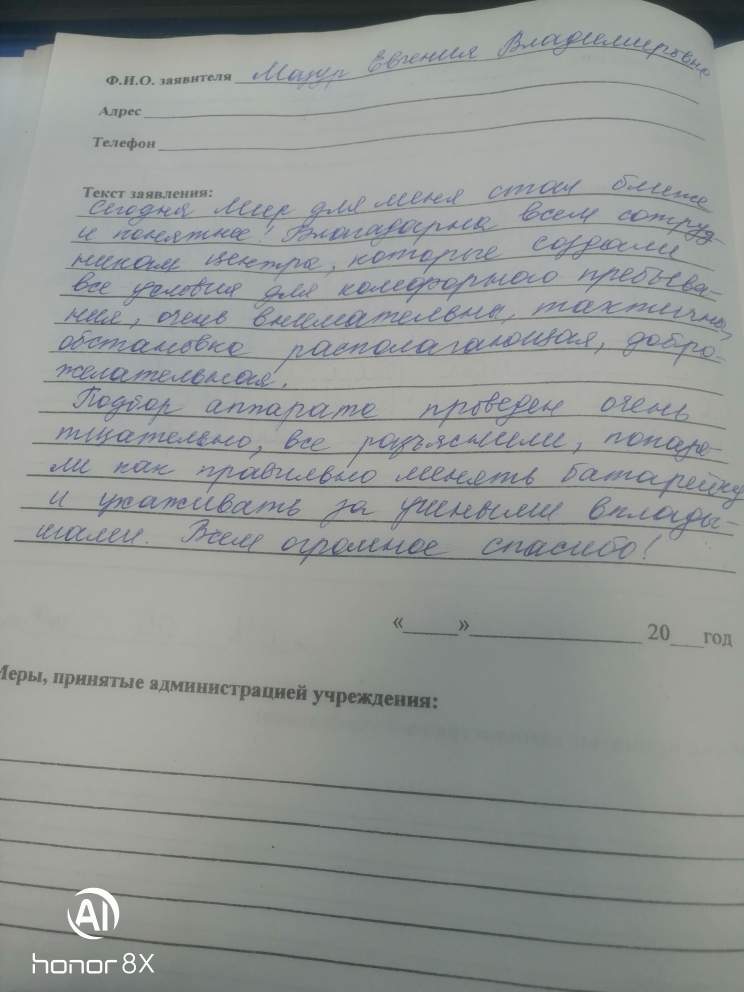 Ф.И.О. заявителя Мазур Евгения Владимировна
Адрес
Телефон
Текст заявления:
Сегодня Мир для меня стал ближе
и понятнее! Благодарна всем сотруд-
никам центра, которые создали
все условия для комфорного пребыва-
ния, очень внимательны, тактичны,
обстановка располагающая, добро-
желательная.
Подбор аппарата проведен очень
тщательно, все разъяснили, показа-
ли как правильно менять батарейку
и ухаживать за ушными вклады-
шами. Всем огромное спасибо!
«____»____________ 20___год
Меры, принятые администрацией учреждения:
AI
honor 8X